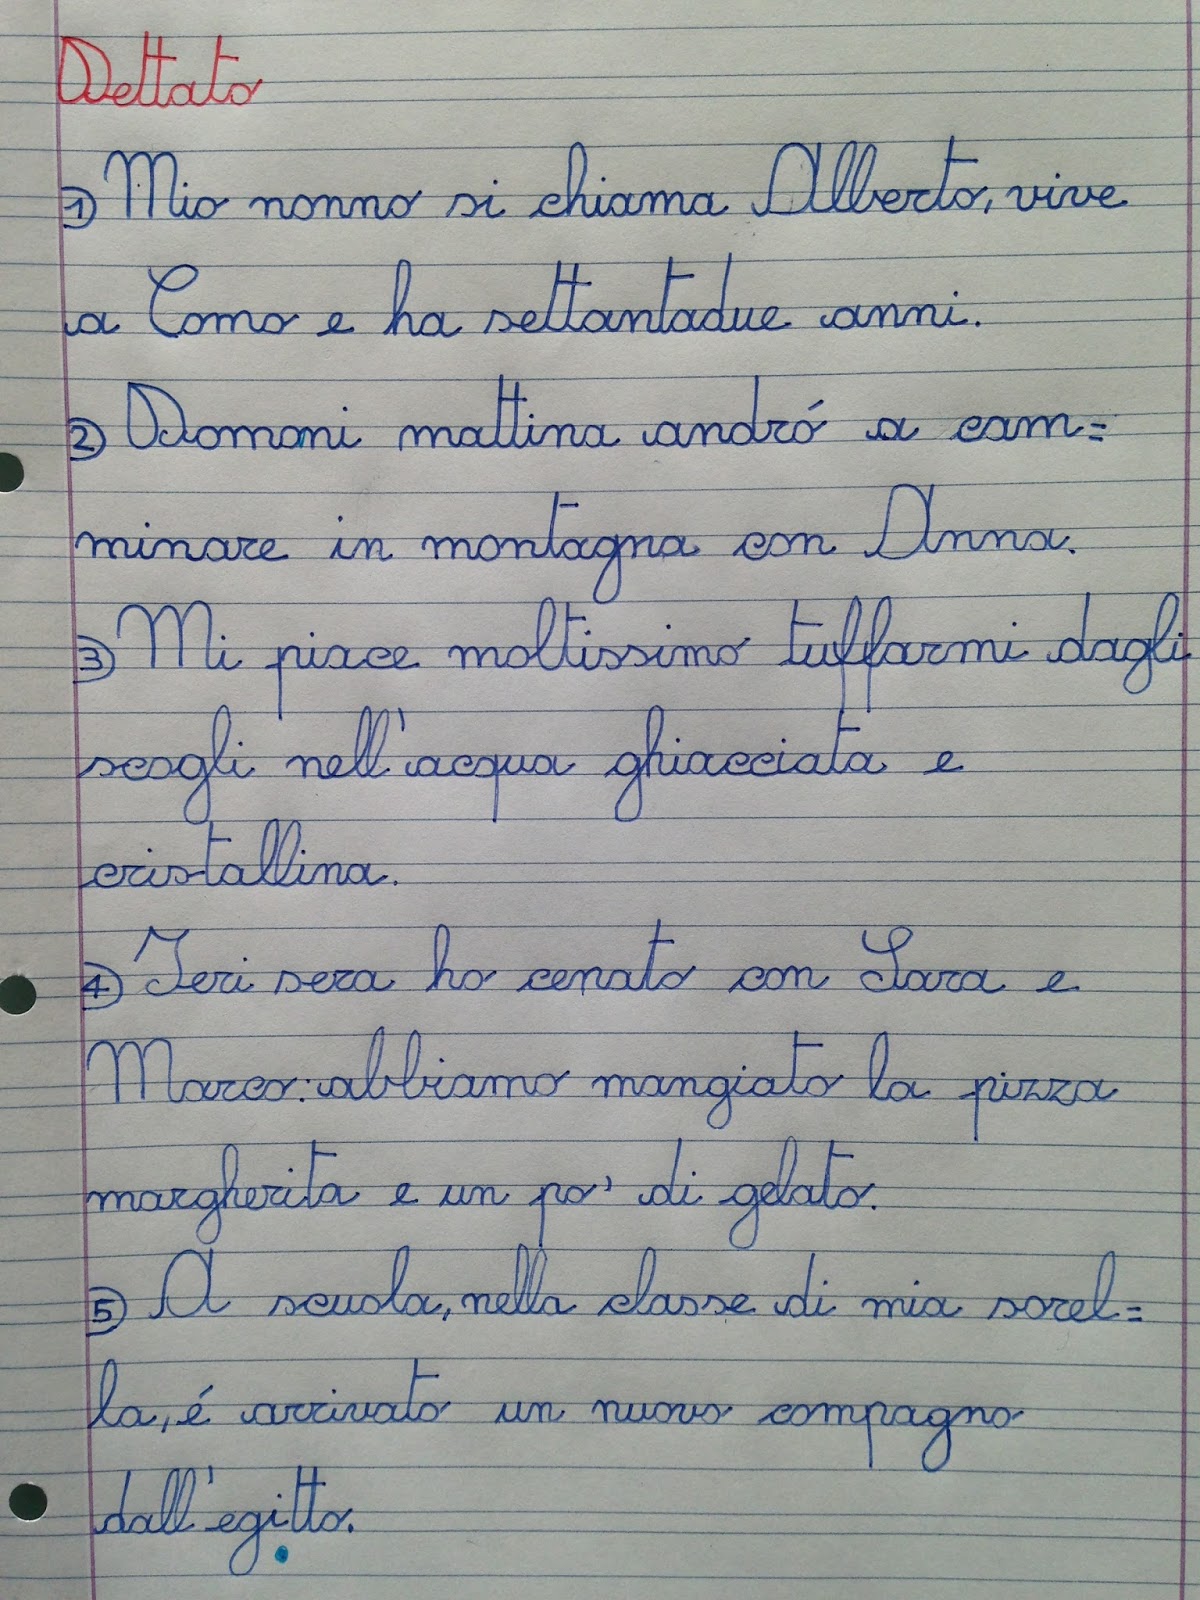 Dettato
1) Mio nonno si chiama Alberto, vive
a Como e ha settantadue anni.
2) Domani mattina andró a cam=
minare in montagna con Anna.
3) Mi piace moltissimo tuffarmi dagli
scogli nell'acqua ghiacciata e
cristallina.
4) Ieri sera ho cenato con Sara e
Marco: abbiamo mangiato la pizza
margherita e un po' di gelato.
5) A scuola, nella classe di mia sorel=
la, é arrivato un nuovo compagno
dall'egitto.